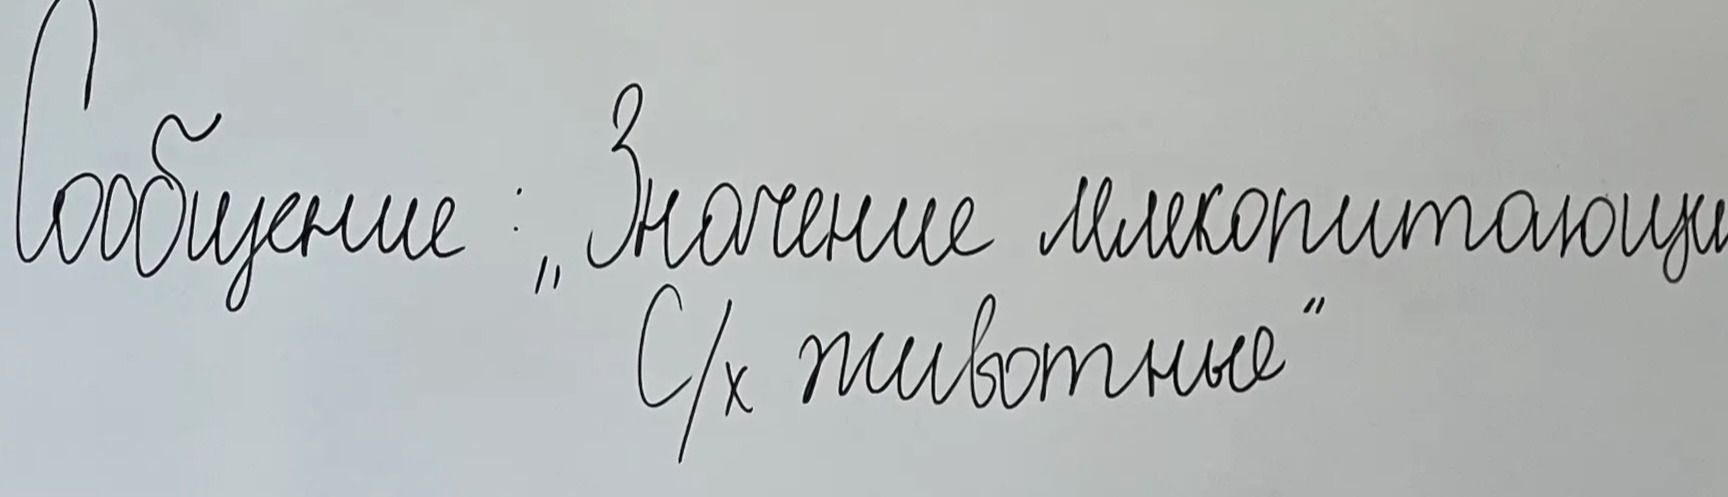 Сообщение : „Значение млекопитающи
С/х животные"